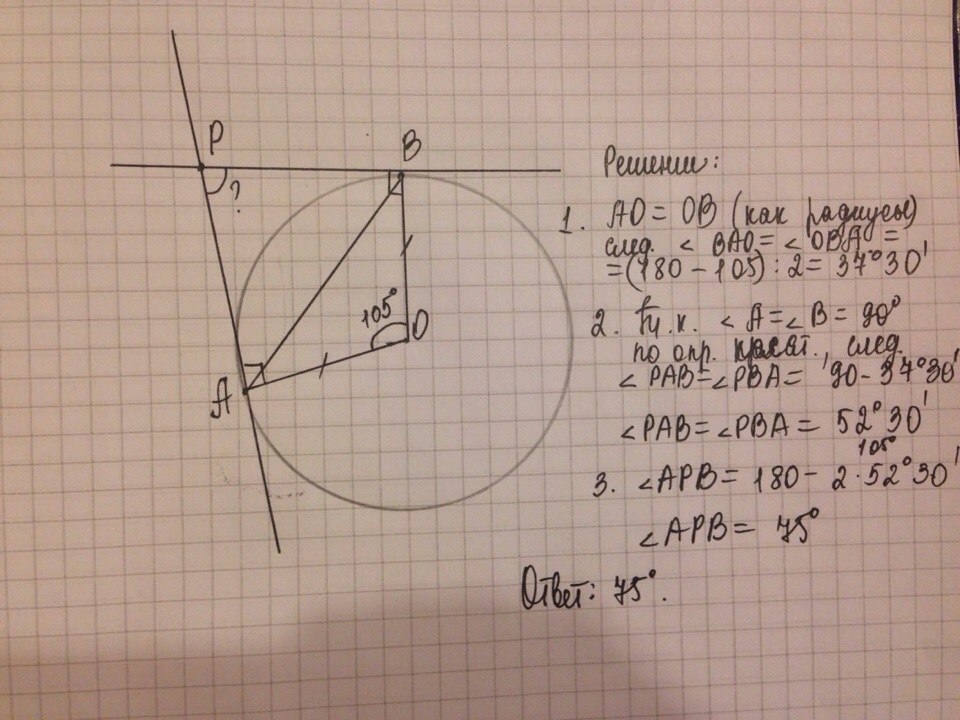 P
B
?
105°
O
A
Решении:
1. AO = OB (как радиусы)
след. < BAO = < OBA =
= (180 - 105) : 2 = 37°30'
2. Т.к. < A = < B = 90°
по опр. касат., след.
< PAB = < PBA = 90 - 37°30'
< PAB = < PBA = 52°30'
105°
3. < APB = 180 - 2 · 52°30'
< APB = 75°
Ответ: 75°.